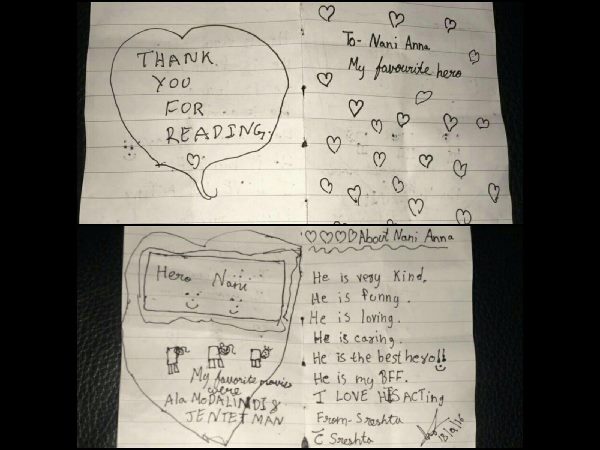 THANK
YOU
FOR
READING.
To- Nani Anna
My favourite hero
Hero Nani
My favorite movies
were
Ala MODALINDI &
JENTET MAN
About Nani Anna
He is very kind.
He is funny.
He is loving.
He is caring.
He is the best hero!!
He is my BFF.
I LOVE HIS ACTing
From- Sreshta
Sreshta